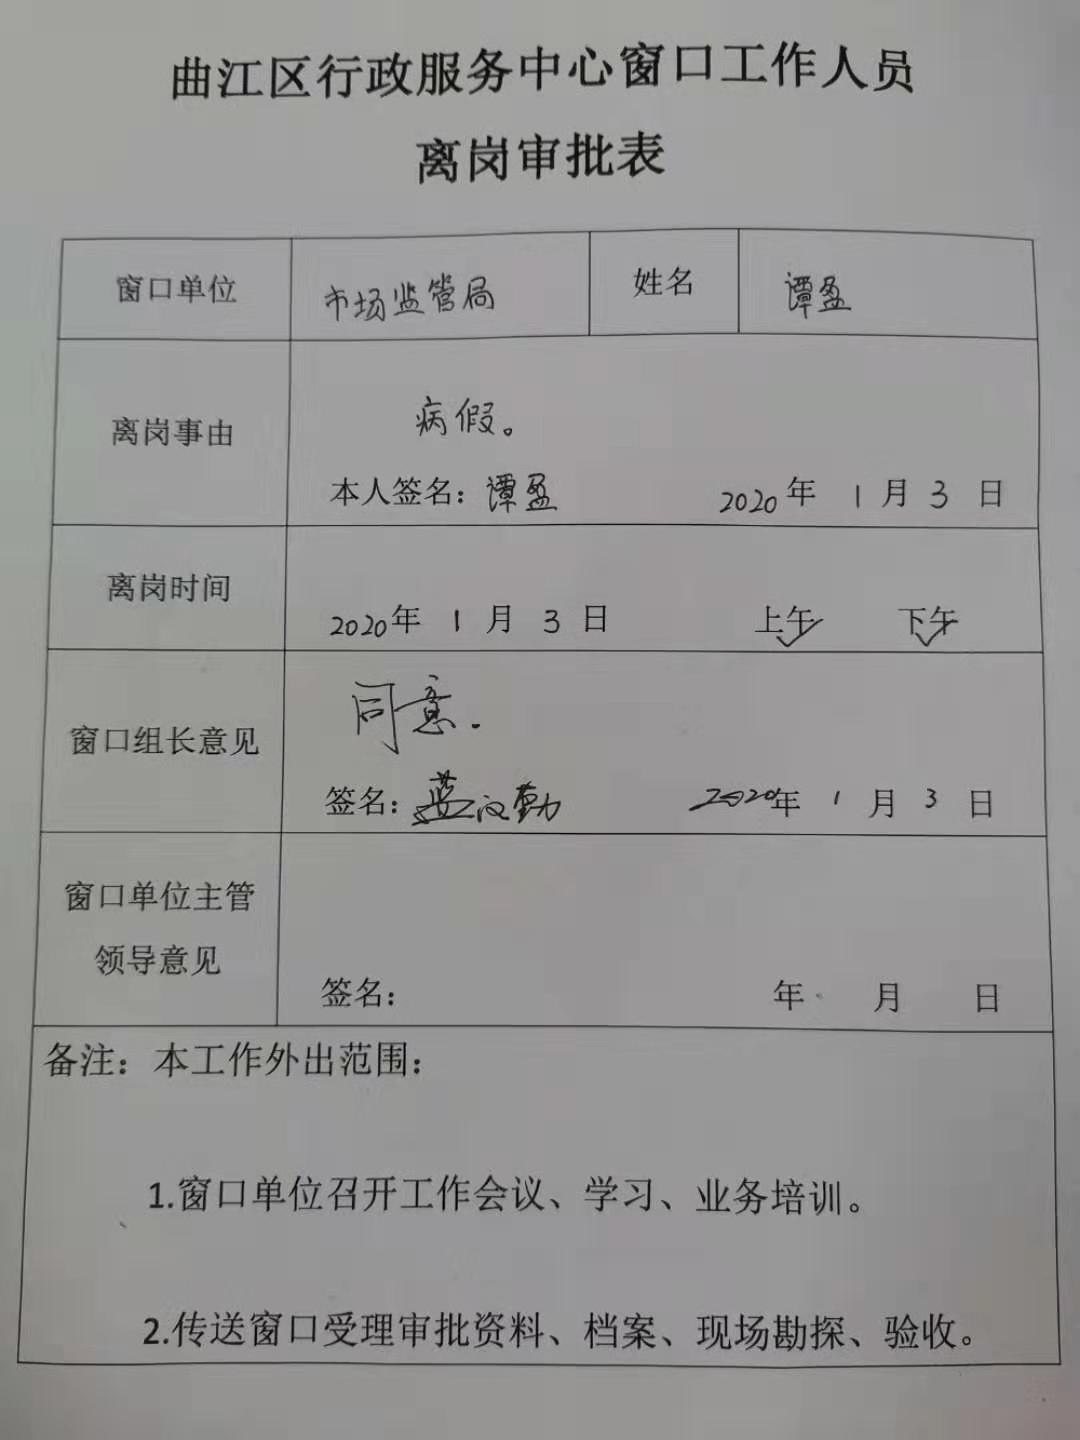 曲江区行政服务中心窗口工作人员
离岗审批表
窗口单位 市场监管局 姓名 谭盈
离岗事由
病假。
本人签名：谭盈 2020年 1 月 3 日
离岗时间
2020年 1 月 3 日 上午 下午
窗口组长意见
同意.
签名：蓝汉勤 2020年 1 月 3 日
窗口单位主管
领导意见
签名： 年 月 日
备注：本工作外出范围：
1.窗口单位召开工作会议、学习、业务培训。
2.传送窗口受理审批资料、档案、现场勘探、验收。